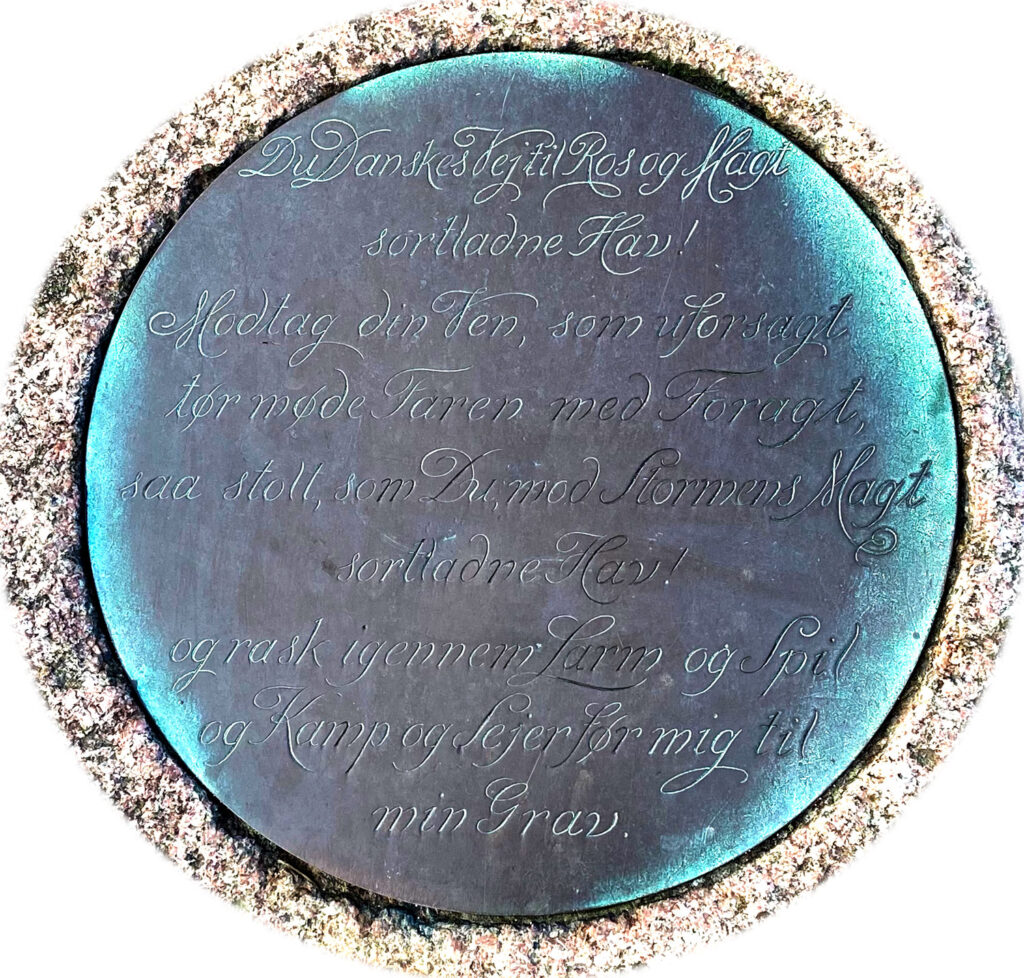 Du Danskes Vej til Ros og Magt
sortladne Hav!
Modtag din Ven, som uforsagt
tør møde Faren med Foragt,
saa stolt, som Du, mod Stormens Magt
sortladne Hav!
og rask igennem Larm og Spil
og Kamp og Sejer før mig til
min Grav.